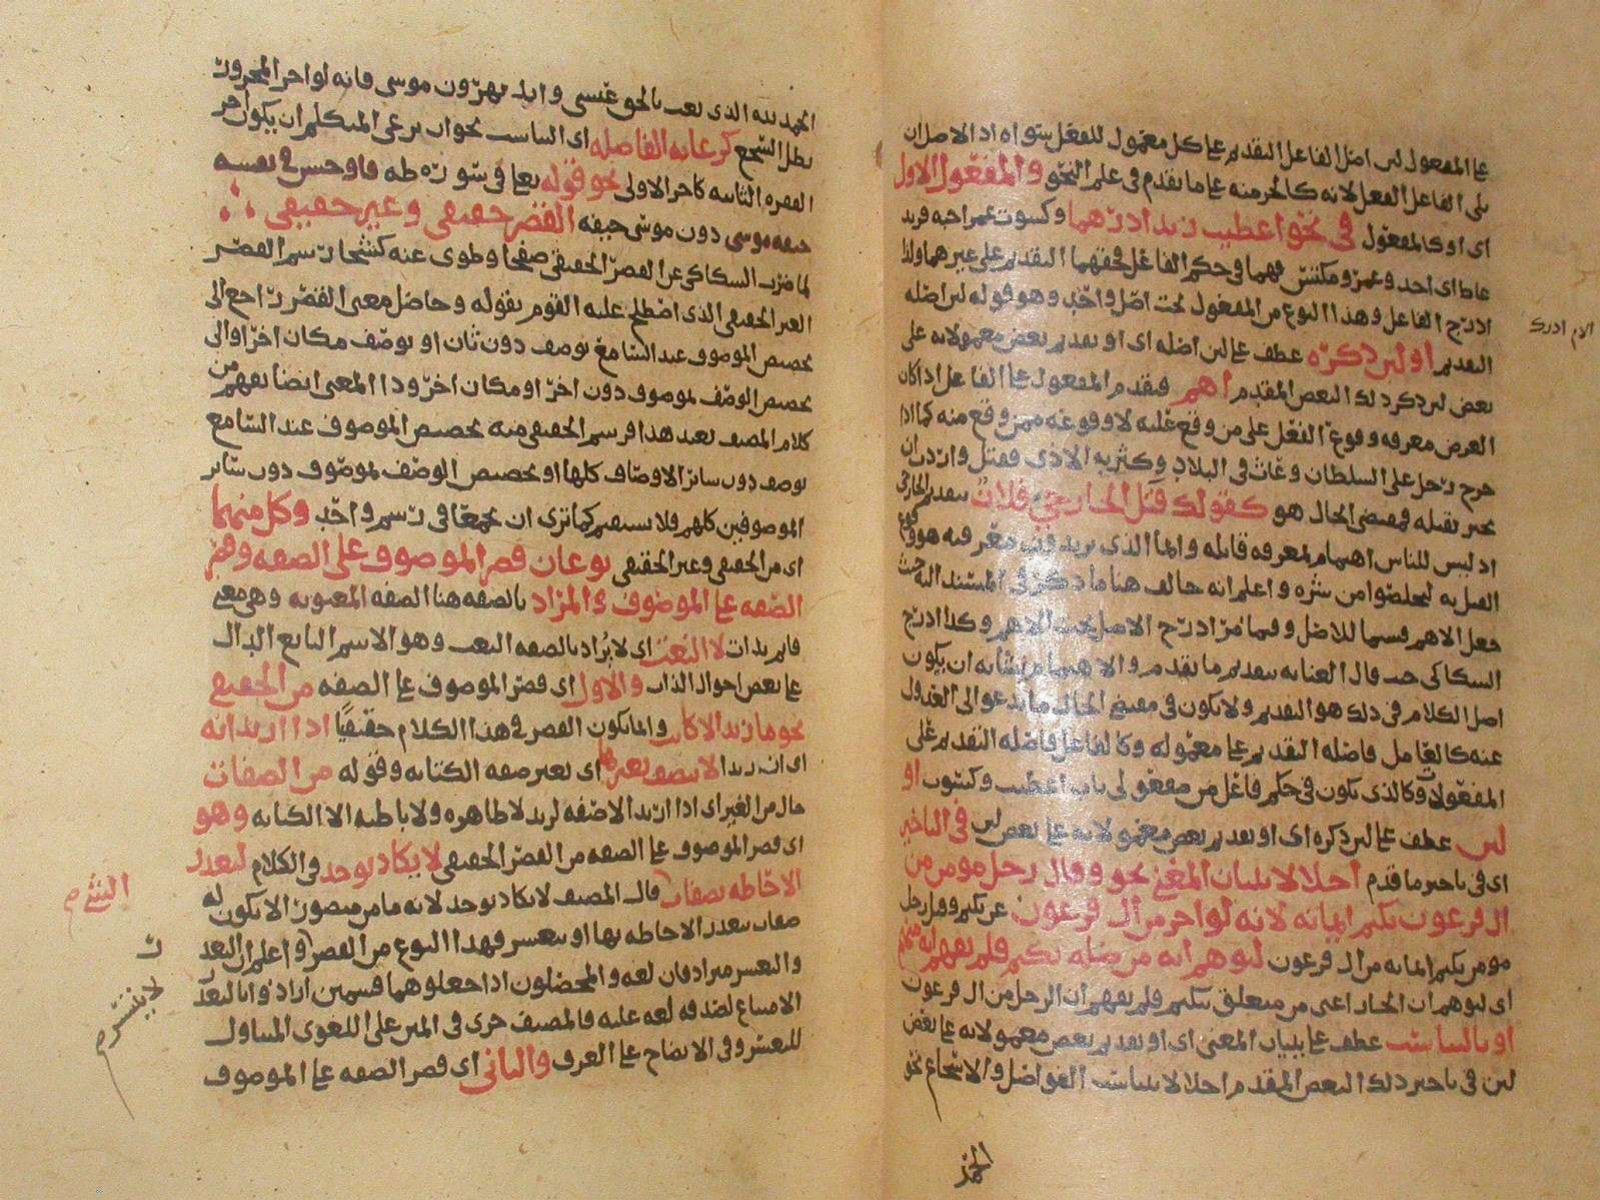 على المفعول لان اصل الفاعل التقديم على كل معمول للفعل سواه اذ الاصل ان
يلي الفاعل الفعل لانه كالجزء منه على ما تقدم في علم النحو والمفعول الاول
اي او كالمفعول في نحو اعطيت زيدا درهما وكسوت عمرا جبة فزيد
عاط اي اخذ وعمرو مكتس فهما في حكم الفاعل فحقهما التقديم على غيرهما ولذا
ادرج الفاعل وهذا النوع من المفعول تحت اصل واحد وهو قوله لان اصله
التقديم او لان ذكره عطف على لان اصله اي او تقديم بعض معمولاته على
بعض لان ذكر ذلك البعض المقدم اهم فيقدم المفعول على الفاعل اذا كان
الغرض معرفة وقوع الفعل على من وقع عليه لا وقوعه ممن وقع منه كما اذا
خرج رجل على السلطان وعاث في البلاد وكثر به الاذى فقتل واردت ان
تخبر بقتله فمقتضى الحال هو كقولك قتل الخارجي فلان بتقديم الخارجي
اذ ليس للناس اهتمام بمعرفة قاتله وانما الذي يريدون معرفته هو وقوع
القتل به ليخلصوا من شره واعلم انه خالف هنا ما ذكر في المسند اليه حيث
جعل الاهم قسيما للاصل وفيما مر ادرج الاصل تحت الاهم وكذا ادرج
السكاكي حيث قال العناية بتقديم ما يقدم والاهتمام بشأنه ان يكون
اصل الكلام في ذلك هو التقديم ولا يكون في مقتضى الحال ما يدعو الى العدول
عنه كالعامل فاصله التقديم على معموله وكالفاعل فاصله التقديم على
المفعولات وكالذي يكون في حكم فاعل من مفعولي باب اعطيت وكسوت او
لان عطف على لان ذكره اي او تقديم بعض معمولاته على بعض لان في التاخير
اي في تاخير ما قدم اخلالا ببيان المعنى نحو وقال رجل مومن من
ال فرعون يكتم ايمانه لانه لو اخر من ال فرعون عن يكتم وقيل رجل
مومن يكتم ايمانه من ال فرعون لتوهم انه من صلة يكتم فلم يفهم انه منهم
اي لتوهم ان الجار اعني من متعلق بيكتم فلم يفهم ان الرجل من ال فرعون
او بالتناسب عطف على ببيان المعنى اي او تقديم بعض معمولاته على بعض
لان في تاخير ذلك البعض المقدم اخلالا بتناسب الفواصل والاسجاع نحو
الحمد لله الذي بعث بالحق عيسى وايد بهرون موسى فانه لو اخر المجرور
بطل السجع كرعاية الفاصلة اي التناسب نحو
الفقرة الثانية كاخر الاولى نحو قوله تعالى في سورة طه فاوجس في نفسه
خيفة موسى دون موسى خيفة القصر حقيقي وغير حقيقي
لما ضرب السكاكي عن القصر الحقيقي صفحا وطوى عنه كشحا رسم القصر
الغير الحقيقي الذي اصطلح عليه القوم بقوله وحاصل معنى القصر راجع الى
تخصيص الموصوف عند السامع بوصف دون ثان او بوصف مكان اخر او الى
تخصيص الوصف بموصوف دون اخر او مكان اخر وذا المعنى ايضا يفهم من
كلام المصنف بعد هذا فرسم الحقيقي منه تخصيص الموصوف عند السامع
بوصف دون سائر الاوصاف كلها او تخصيص الوصف بموصوف دون سائر
الموصوفين كلهم فلا يستقيم كما ترى ان يجمعا في رسم واحد وكل منهما
اي من الحقيقي وغير الحقيقي نوعان قصر الموصوف على الصفة وقصر
الصفة على الموصوف والمراد بالصفة هنا الصفة المعنوية وهي معنى
قائم بذات لا النعت اي لا يراد بالصفة النعت وهو الاسم التابع الدال
على بعض احوال الذات والاول اي قصر الموصوف على الصفة من الحقيقي
نحو ما زيد الا كاتب وانما يكون القصر في هذا الكلام حقيقيا اذا اريد انه
اي ان زيدا لا يتصف بغيرها اي بغير صفة الكتابة وقوله من الصفات
حال من الغير اي اذا اريد الا صفة لزيد لا ظاهرة ولا باطنة الا الكتابة وهو
اي قصر الموصوف على الصفة من القصر الحقيقي لا يكاد يوجد في الكلام لتعذر
الاحاطة بصفات قال المصنف لا يكاد يوجد لانه ما من متصور الا يكون له
صفات يتعذر الاحاطة بها او يتعسر فهذا النوع من القصر واعلم ان التعذر
والتعسر مترادفان لغة والمحصلون اذا جعلوهما قسمين ارادوا بالتعذر
الامتناع لصدقه لغة عليه فالمصنف جرى في المتن على اللغوي المتناول
للتعسر وفي الايضاح على العرف والثاني اي قصر الصفة على الموصوف
الحمد